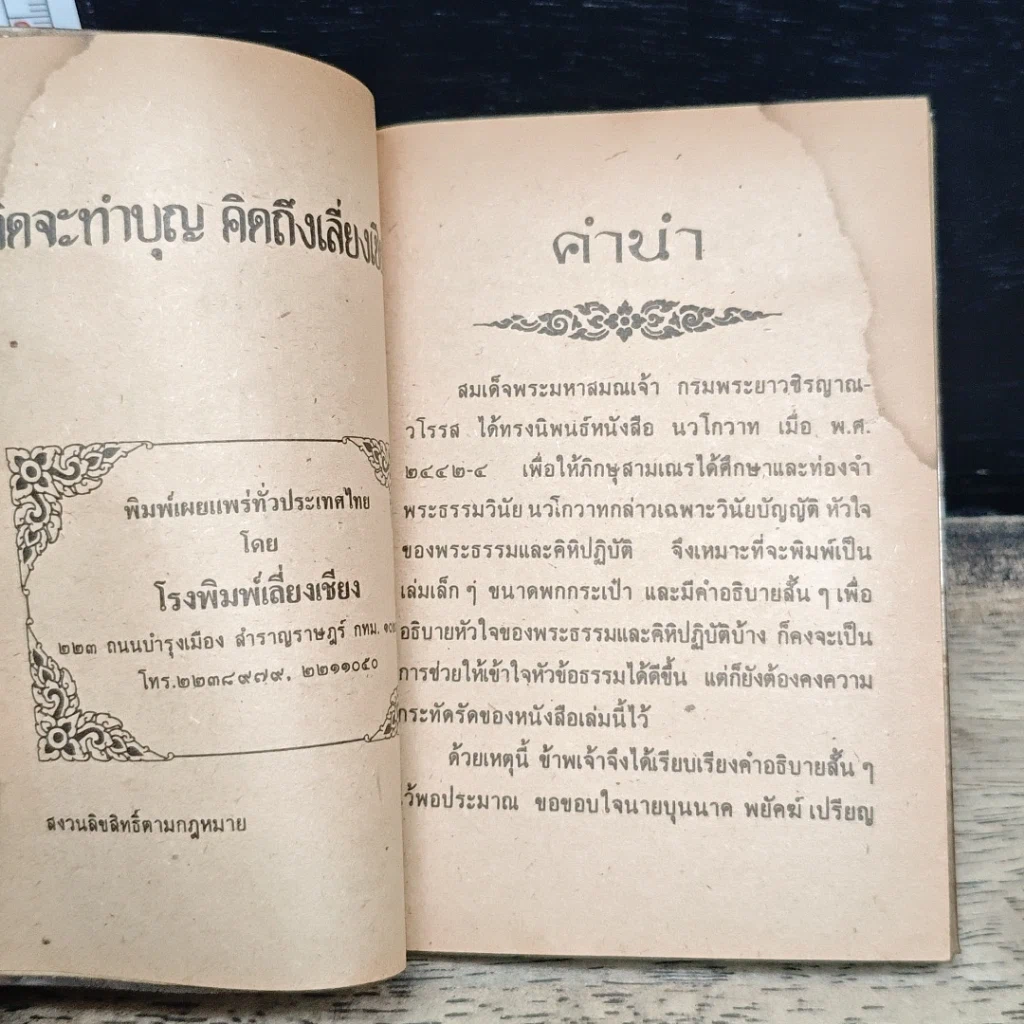 คิดจะทำบุญ คิดถึงเลี่ยง
พิมพ์เผยแพร่ทั่วประเทศไทย
โดย
โรงพิมพ์เลี่ยงเชียง
๒๒๓ ถนนบำรุงเมือง สำราญราษฎร์ กทม.
โทร.๒๒๓๘๙๗๙, ๒๒๑๑๐๕๐
สงวนลิขสิทธิ์ตามกฎหมาย
คำนำ
สมเด็จพระมหาสมณเจ้า กรมพระยาวชิรญาณ-
วโรรส ได้ทรงนิพนธ์หนังสือ นวโกวาท เมื่อ พ.ศ.
๒๔๔๒-๔ เพื่อให้ภิกษุสามเณรได้ศึกษาและท่องจำ
พระธรรมวินัย นวโกวาทกล่าวเฉพาะวินัยบัญญัติ หัวใจ
ของพระธรรมและคิหิปฏิบัติ จึงเหมาะที่จะพิมพ์เป็น
เล่มเล็ก ๆ ขนาดพกกระเป๋า และมีคำอธิบายสั้น ๆ เพื่อ
อธิบายหัวใจของพระธรรมและคิหิปฏิบัติบ้าง ก็คงจะเป็น
การช่วยให้เข้าใจหัวข้อธรรมได้ดีขึ้น แต่ก็ยังต้องคงความ
กระทัดรัดของหนังสือเล่มนี้ไว้
ด้วยเหตุนี้ ข้าพเจ้าจึงได้เรียบเรียงคำอธิบายสั้น ๆ
ไว้พอประมาณ ขอขอบใจนายบุนนาค พยัคฆ์ เปรียญ